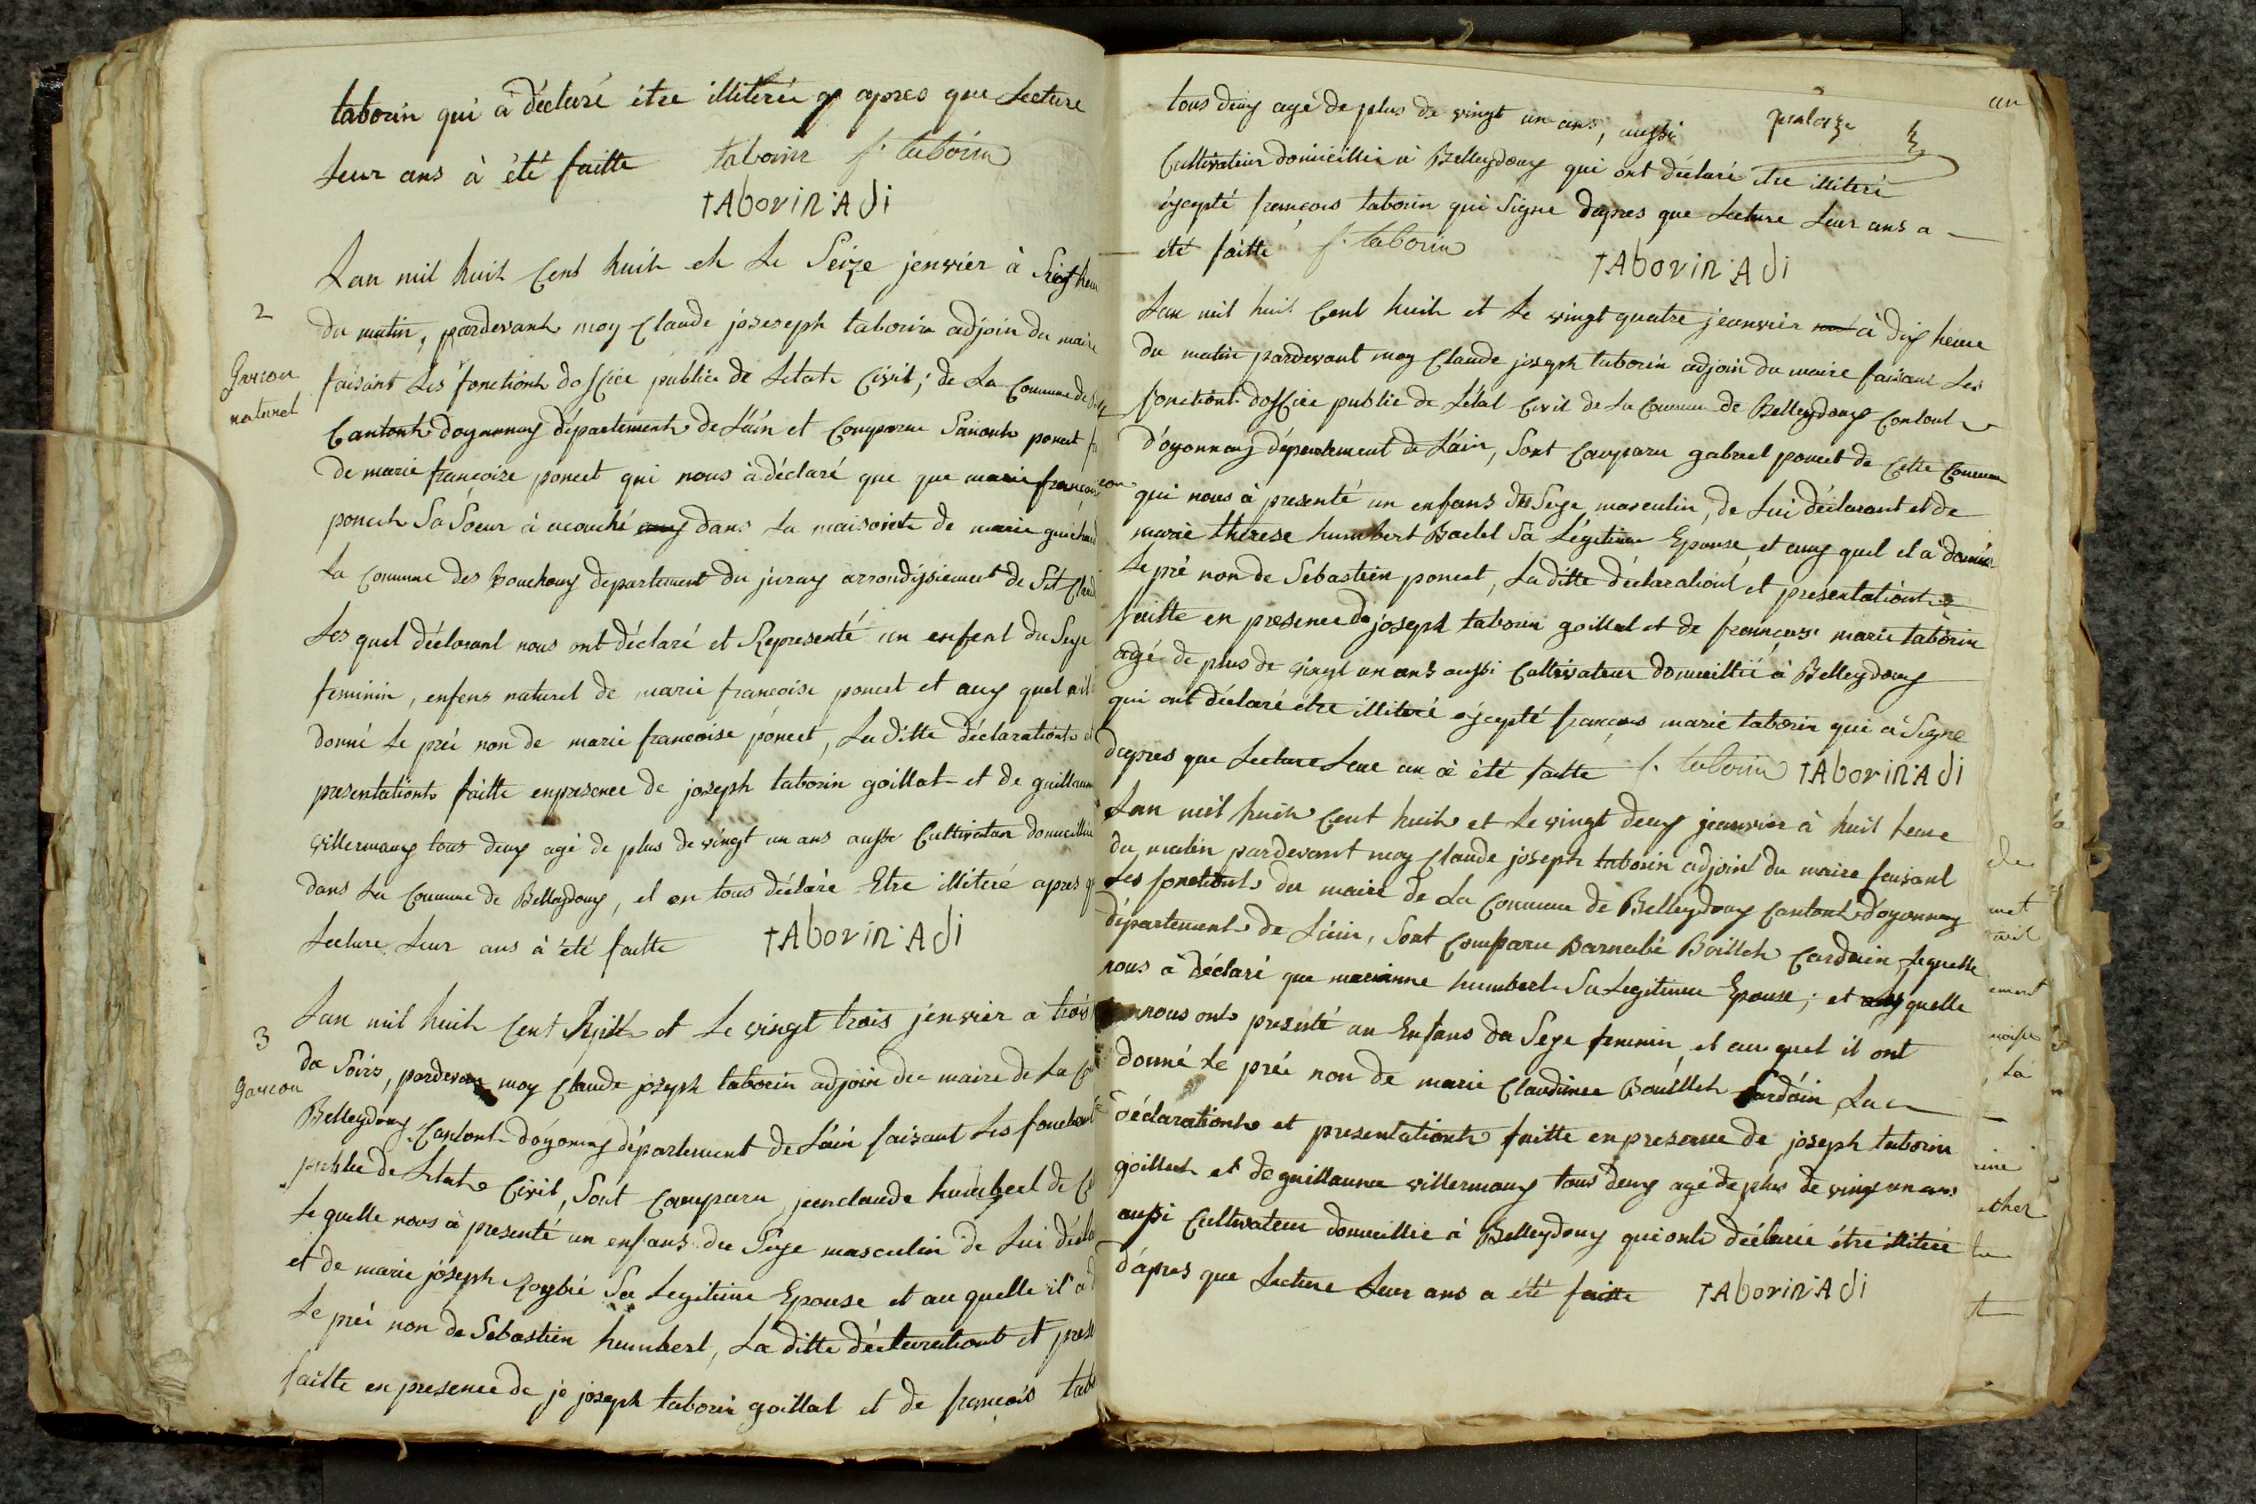 taborin qui à déclaré étre illiterée apres que Lecture
Leur ans à été faitte taborin f. taborin
tAborin Adi
2
Garcon
naturel
Lan mil huit Cent huit et Le Seize jenvier à Sept heu
du matin, pardevant moy Claude joseseph taborin adjoin du maire
faisant Les fonctiont dofficie publie de Letat Civil; de La Commune de Bel
Cantont doyonnay département de Láin et Comparue ponset
de marie francoize poncet qui nous à déclaré que que marie francois
poncet Sa Soeur à acouché dans La maisoint de marie
La Commune des Bouchoux departement du juray arrondissiement de St Claud
Les quel déclarant nous ont déclaré et Representé un enfent du Sexe
feminin, enfens naturel de marie francoise poncet et aux quel
donné Le préi non de marie francoise poncet, La ditte déclarationt et
presentationt faitte enpresence de joseph taborin goillat et de guillaum
villermoux tous deux agé de plus de vingt un ans ausse Cultivatur domicillie
dans La Commune de Belleydoux, et on tous déclaré Etre illiteré apres q
Lecture Leur ans à été faitte tAborin Adi
3
Garcon
Lan mil huit Cent et Le vingt trois jenvier à trois
du Soirs, pardevan moy Claude joseph taborin adjoin du maire de La Co
Belleydoux Cantont d'oyonnay département de Láin faisant Les fonctiont
publie de Létat Civil, Sont Comparu jeanclaude humbert de C
Le quelle nous à presenté un enfans du Sexe masculin de Lui décla
et de marie joseph Sa Legitime Epouse et au quelle il a d
Le préi non de Sebastien humbert, La ditte déclarationt et prese
faitte en presence de jo joseph taborin goillat et de francois tabo
tous deux agé de plus de vingt un ans, aussi
Cultivateur domicillie à Belleydoux qui ont déclaré etre illiteré
éxcepté francois taborin qui Signe dapres que Lecture Leur ans a
été faitte f. taborin tAborin Adi
Lan mil huit Cent huit et Le vingt quatre jeanvier à dix heure
du matin pardevant moy Claude joseph taborin adjoin du maire faisant Les
fonctiont dofficie publie de Létat Civil de La Commune de Belleydoux Contont
d'oyonnax département de Láin, Sont Comparu gabriel poncet de Cette Commun
qui nous à presenté un enfans du Sexe masculin, de Lui déclarant et de
marie therese humbert Sa Légitime Epouse et aux quel il a donné
Le pré non de Sebastien poncet, La ditte déclarationt et presentationt
faitte en presence de joseph taborin goillat et de francois marie taborin
agé de plus de vingt un ans aussi Cultivateur domicillié à Belleydoux
qui ont déclaré etre illiteré éxcepté francois marie taborin qui à Signe
dapres que Lecture Leur an à été faitte f. taborin tAborin Adi
Lan mil huit Cent huit et Le vingt deux jeanvier à huit heure
du matin pardevant moy Claude joseph taborin adjoint du maire faisant
Les fonctiont du maire de La Commune de Belleydoux Cantont d'oyonnay
département de Láin, Sont Comparu Barnabé Boillet Cardain Lequelle
nous à déclaré que marianne humbert Sa Legitime Epouse; et quelle
nous ont presenté un Enfans du Sexe feminin, et au quel il ont
donné Le préi non de marie Claudinee Bouillet Jardáin La
déclarationt et presentationt faitte enpresence de joseph taborin
goillat et de guillaume villermoux tous deux agé de plus de vingt un ans
aussi Cultivateur domicillié à Belleydoux qui ont déclarée étre illiteré
d'apres que Lecture Leur ans a été faitte tAborin Adi